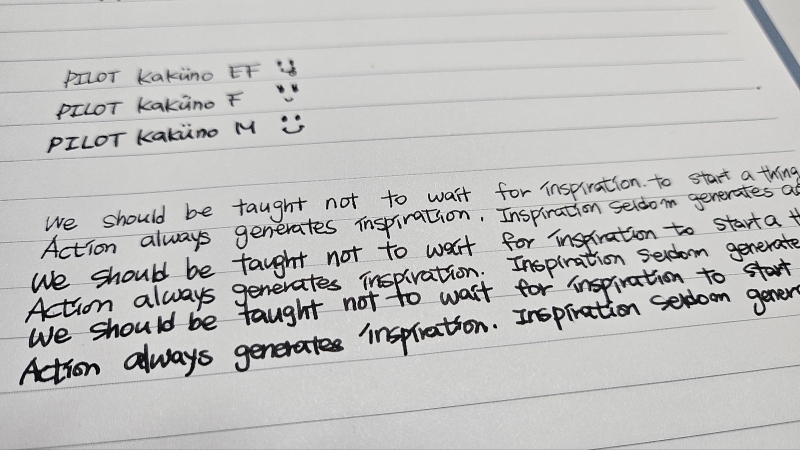 PILOT Kaküno EF
PILOT Kaküno F
PILOT Kaküno M
We should be taught not to wait for inspiration to start a thing
Action always generates inspiration. Inspiration seldom generates
We should be taught not to wait for inspiration to start a
Action always generates inspiration. Inspiration seldom generate
We should be taught not to wait for inspiration to start
Action always generates inspiration. Inspiration seldom gener